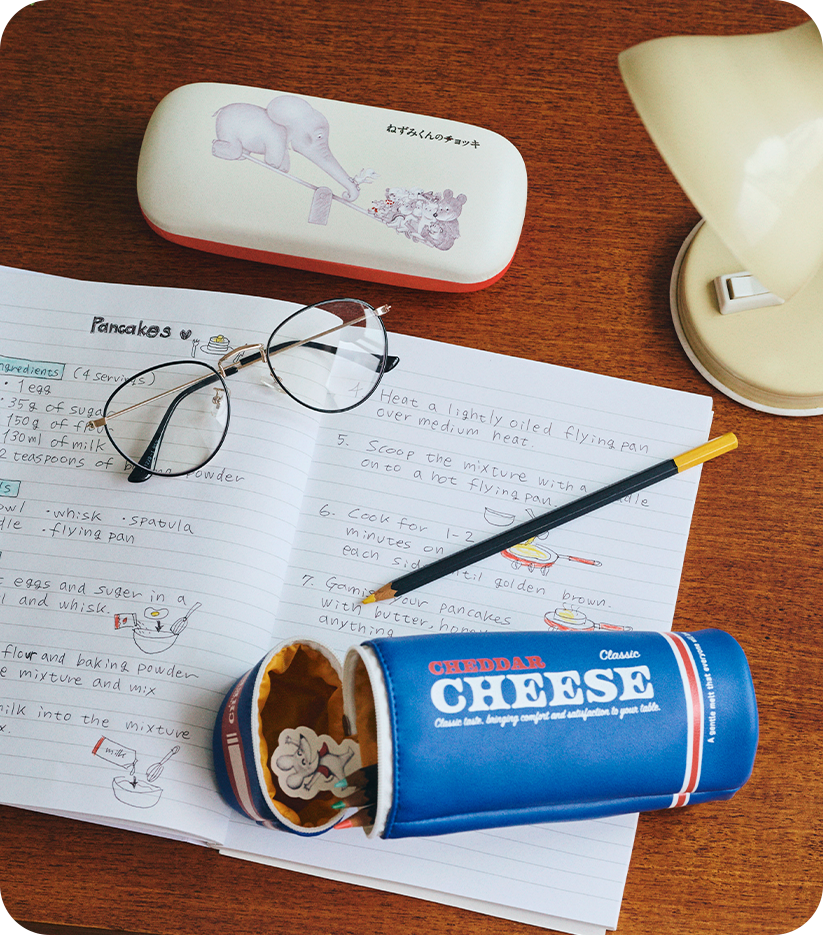 ねずみくんのチョッキ
Pancakes
ngredients (4 servings)
・1 egg
・35g of suga
・150g of flou
130ml of milk
2 teaspoons of powder
owl ・whisk ・spatula
dle ・flying pan
eggs and suger in a
l and whisk.
flour and baking powder
e mixture and mix
milk into the mixture
x.
milk
Heat a lightly oiled flying pan
over medium heat.
5. Scoop the mixture with a dle
onto a hot flying pan
6. Cook for 1-2
minutes on
each side until golden brown.
7. your pancakes
with butter, honey
anything
CHEDDAR
Classic
CHEESE
Classic taste, bringing comfort and satisfaction to your table.
A gentle melt that everyone
CH